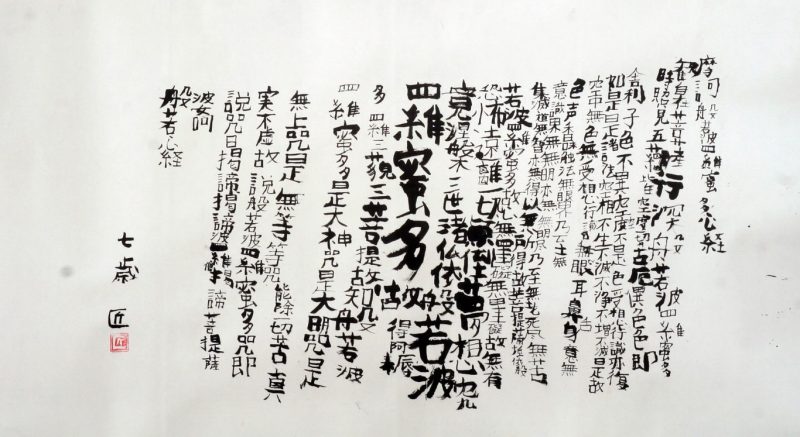 摩訶般若波羅蜜多心経
観自在菩薩行深般若波羅蜜多
時照見五蘊皆空度一切苦厄
舎利子色不異空
色即
受想行識亦復
如是
不生不滅不垢不浄不増不減是故
空中無色無受想行識無眼耳鼻舌身意無
色声香味触法無眼界乃至無
意識界無無明亦無無明尽乃至無老死
無苦
集滅道無智亦無得以無所得故菩提薩埵依般
若波羅蜜多故心無罣礙無罣礙故無有
恐怖遠離一切顛倒夢想
究竟涅槃三世諸仏依般若波
羅蜜多故得阿
多羅三藐三菩提故知般
若波
羅蜜多是大神呪是大明呪是
無上呪是無等等呪能除一切苦真
実不虚故説般若波羅蜜多呪即
説呪曰掲諦掲諦波羅掲諦
菩提薩
婆訶
般若心経
七歳
匠
匠